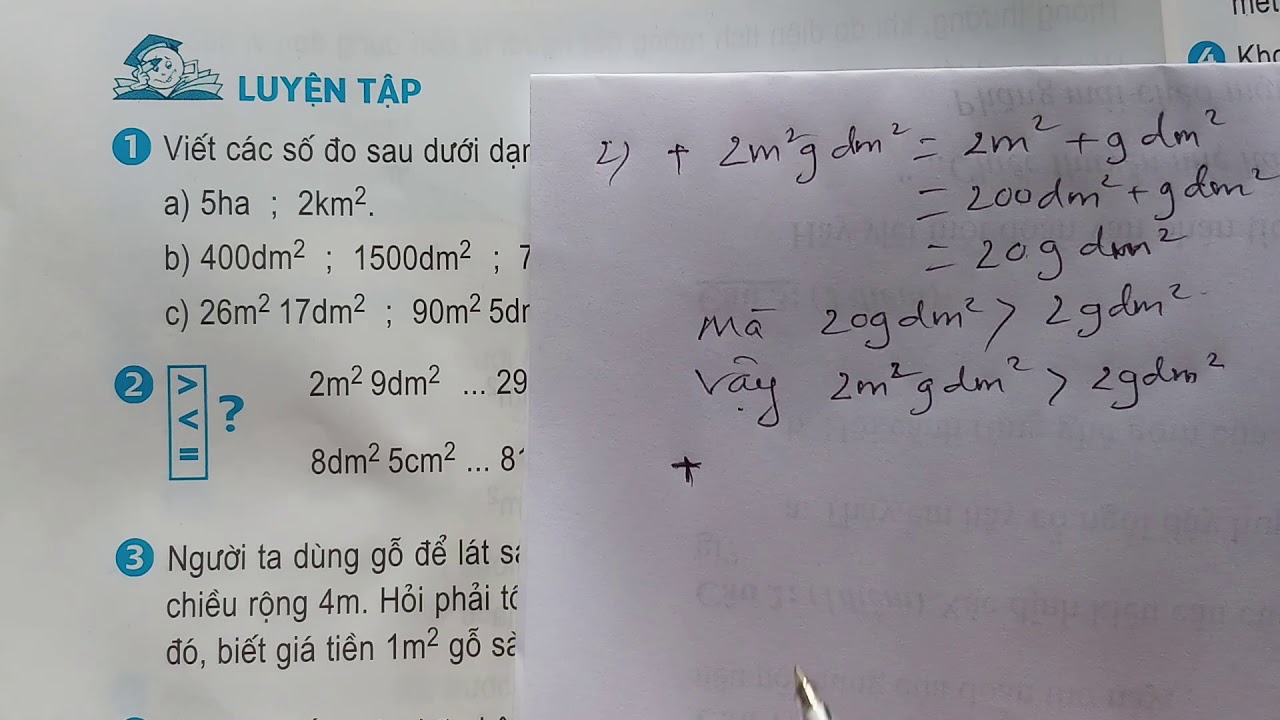 LUYỆN TẬP
1 Viết các số đo sau dưới
a) 5ha ; 2km².
b) 400dm² ; 1500dm² ; 7
c) 26m² 17dm² ; 90m²
2 > < = ? 2m² 9dm² ... 29
8dm² 5cm² ...
3 Người ta dùng gỗ để lát
chiều rộng 4m. Hỏi phải
đó, biết giá tiền 1m² gỗ
4
2) + 2m²9dm² = 2m² + 9dm²
= 200dm² + 9dm²
= 209dm²
mà 209dm² > 29dm²
Vậy 2m²9dm² > 29dm²
+